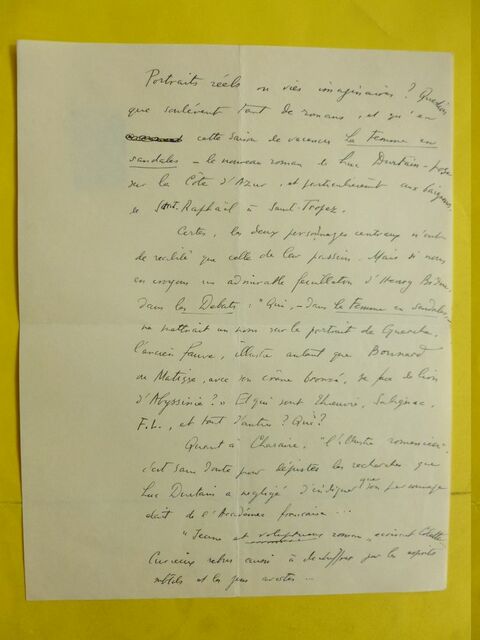 Portraits réels ou vies imaginaires ? Question
que soulèvent tant de romans, et qu'en
cette saison de vacances La Femme en
sandales – le nouveau roman de Luc Durtain – pose
sur la Côte d'Azur, et particulièrement aux baigneurs
de Saint-Raphaël à Saint-Tropez.
Certes, les deux personnages centraux n'ont
de réalité que celle de leur passion. Mais si nous
en croyons un admirable feuilleton d'Henry Bidou,
dans les Débats : "Qui, – dans la Femme en sandales, –
ne mettrait un nom sur le portrait de
l'ancien fauve, illustre autant que Bonnard
ou Matisse, avec son crâne bronzé, sa face de lion
d'Abyssinie ?" Et qui sont
F.L., et tant d'autres ? Qui ?
Quant à Charaire, "l'illustre romancier",
c'est sans doute pour dépister les recherches que
Luc Durtain a négligé d'indiquer que son personnage
était de l'Académie française ...
"Jeune et voluptueux roman, écrivait Colette
Curieux aussi à déchiffrer par les esprits
subtils et les gens avertis ...